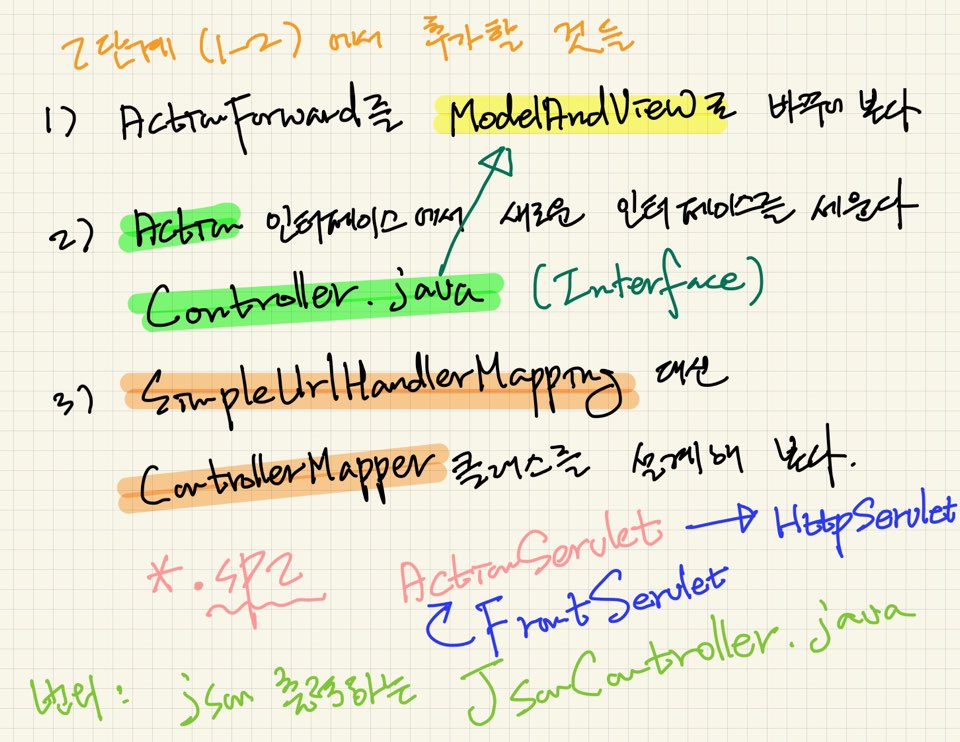 2단계 (1-2) 에서 추가할 것들
1) ActionForward를 ModelAndView로 바꾸어 본다
2) Action 인터페이스에서 새로운 인터페이스를 세운다
Controller.java (Interface)
3) SimpleUrlHandlerMapping 대신
ControllerMapper 클래스를 설계해 본다.
*.sp2 ActionServlet → HttpServlet
FrontServlet
번외: json 출력하는 JsonController.java